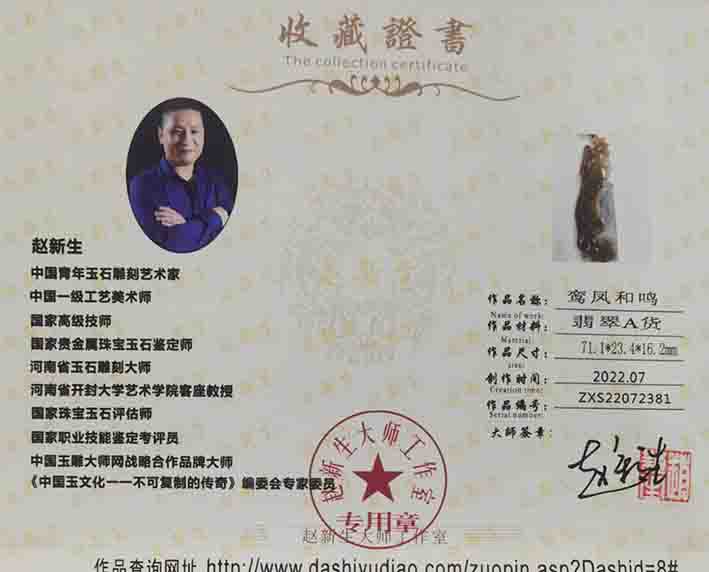 收藏證書
The collection certificate
赵新生
中国青年玉石雕刻艺术家
中国一级工艺美术师
国家高级技师
国家贵金属珠宝玉石鉴定师
河南省玉石雕刻大师
河南省开封大学艺术学院客座教授
国家珠宝玉石评估师
国家职业技能鉴定考评员
中国玉雕大师网战略合作品牌大师
《中国玉文化一一不可复制的传奇》编委会专家委员
作品名称： 鸾凤和鸣
Name of work:
作品材料： 翡翠A货
Matrrial:
作品尺寸： 71.1*23.4*16.2mm
area:
创作时间： 2022.07
Creation time:
作品编号： ZXS22072381
Serial number:
大師签章：
赵新生大师工作室
专用章
赵新生大师工作室
作品查询网址 http://www.dashiyudiao.com/zuopin.asp?Dashid=8#